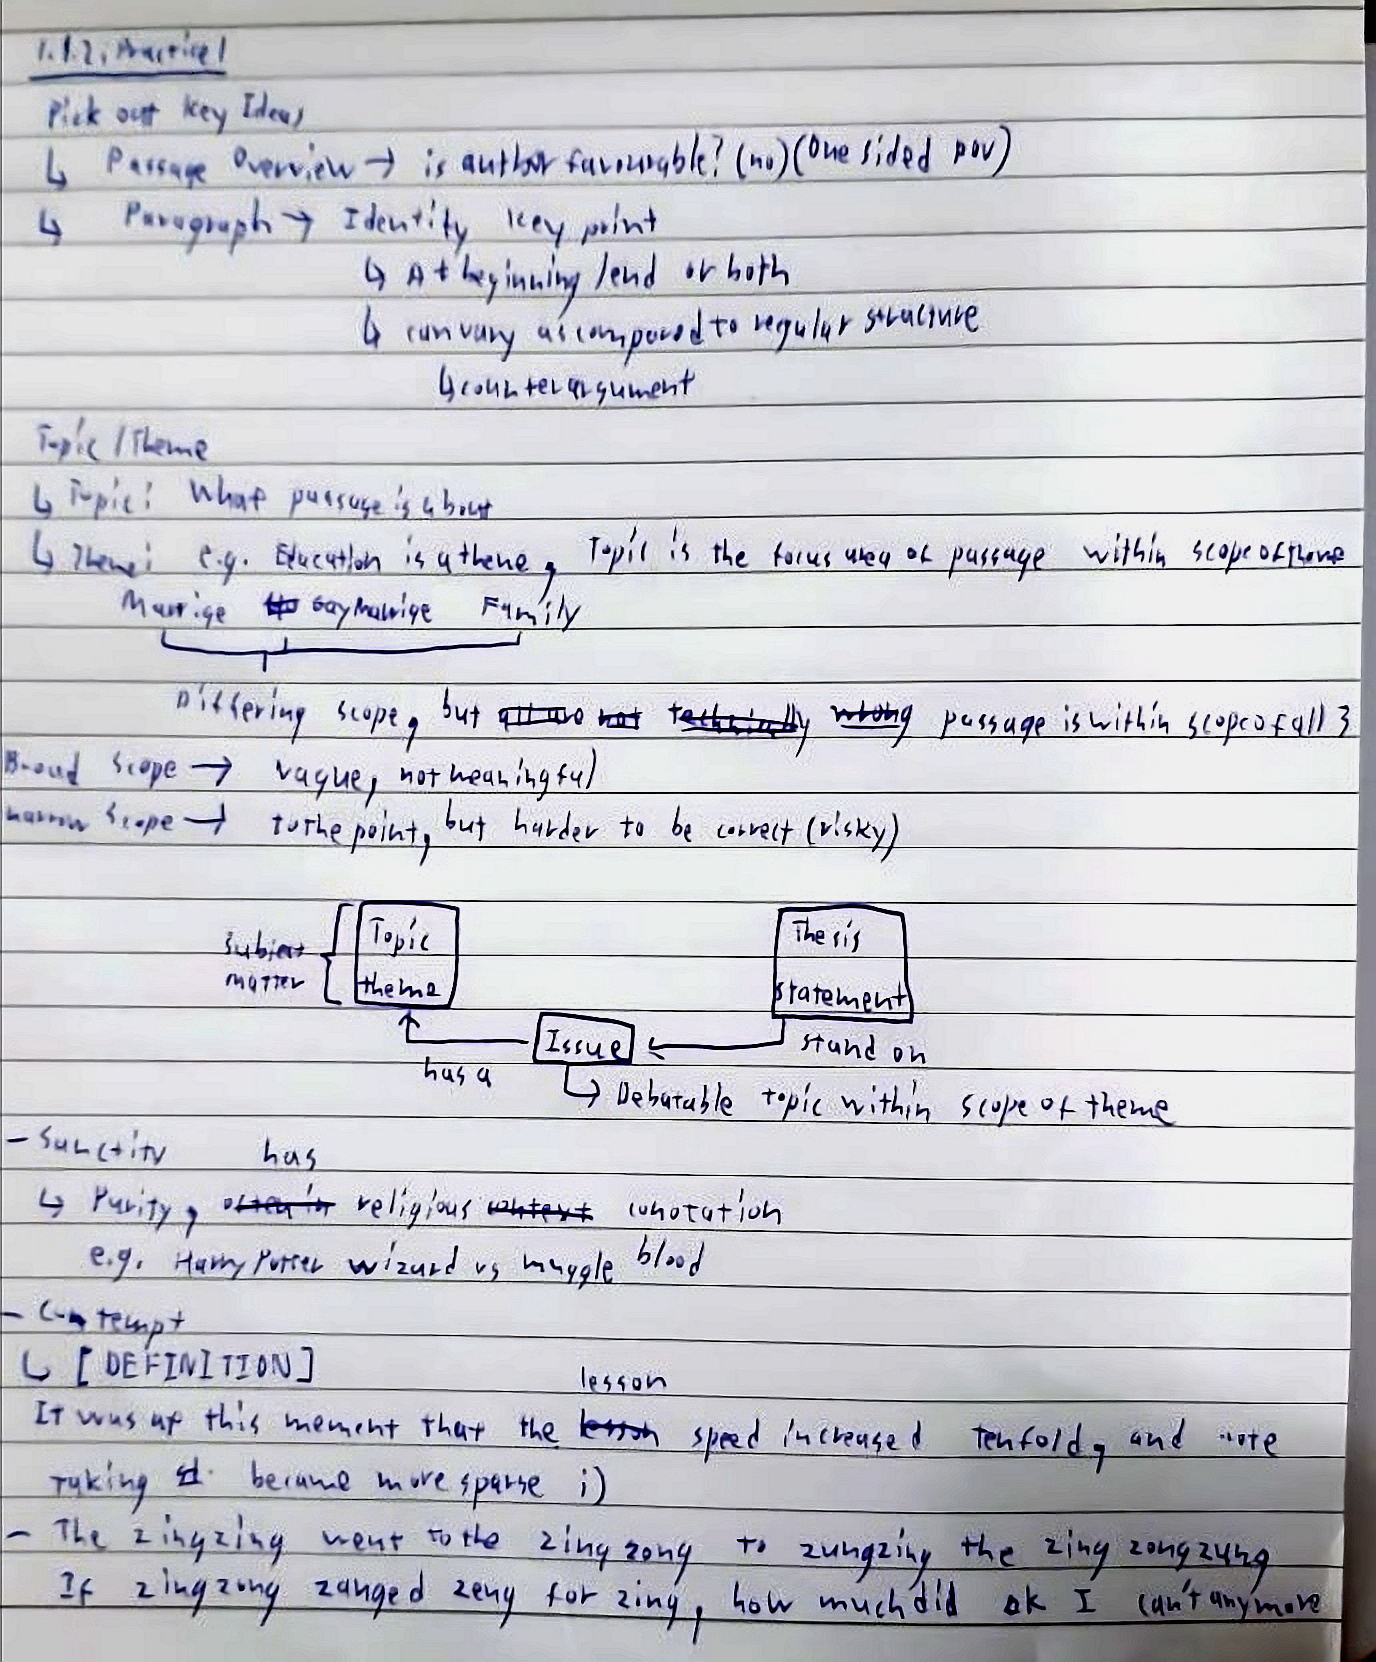 1.1.2. Practice 1
Pick out key Ideas
↳ Passage Overview → is author favourable? (no) (One sided pov)
↳ Paragraph → Identity key point
↳ At beginning / end or both
↳ can vary as compared to regular structure
↳ counterargument
Topic / Theme
↳ Topic: What passage is about
↳ Theme: e.g. Education is a theme, Topic is the focus area of passage within scope of theme
Marrige Gay Marrige Family
Differing scope, but all are not technically wrong passage is within scope of all 3
Broad Scope → vague, not meaningful
narrow Scope → to the point, but harder to be correct (risky)
Subject matter
Topic
theme
Thesis
statement
Issue
has a
stand on
↳ Debatable topic within scope of theme
- Sanctity has
↳ Purity, often in religious context conotation
e.g. Harry Potter wizard vs muggle blood
- Contempt
↳ [DEFINITION]
lesson
It was at this mement that the lesson speed increased tenfold, and note
taking became more sparse i)
- The zingzing went to the zingzong to zungzing the zing zongzung
If zingzong zanged zeng for zing, how much did ok I can't anymore